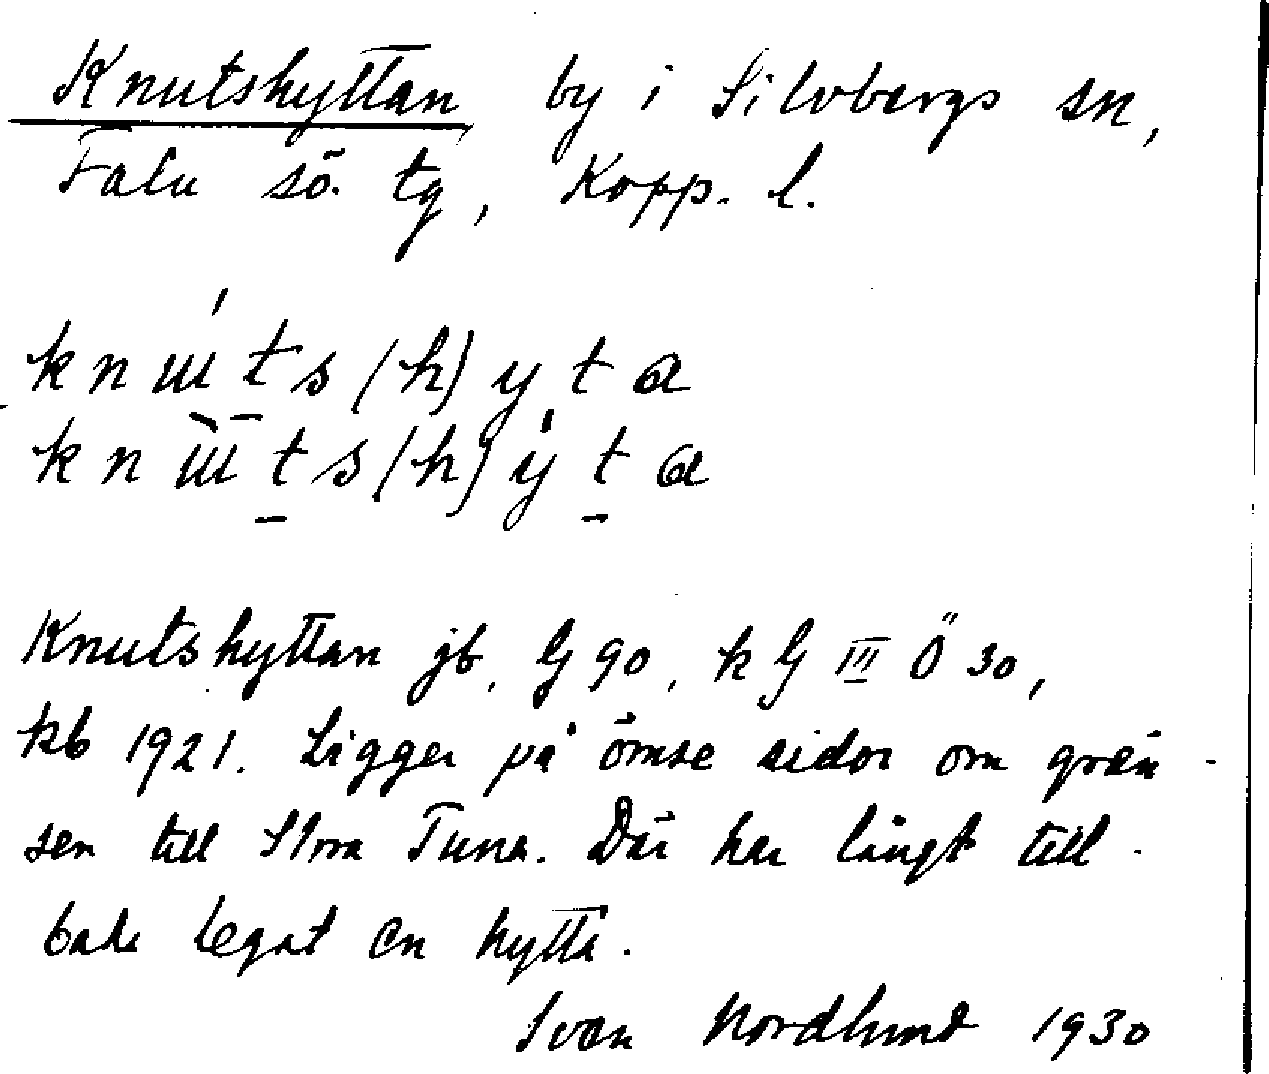 Knutshyttan by i Silvbergs sn,
Falu sö. tg, Kopp. l.
knɯ́ts(h)yta
knɯ̀ts(h)ýta
Knutshyttan jb, G 90, k G III Ö 30,
kb 1921. Ligger på ömse sidor om grän-
sen till Stora Tuna. Där har långt till-
baka legat en hytta.
Sven Nordlund 1930